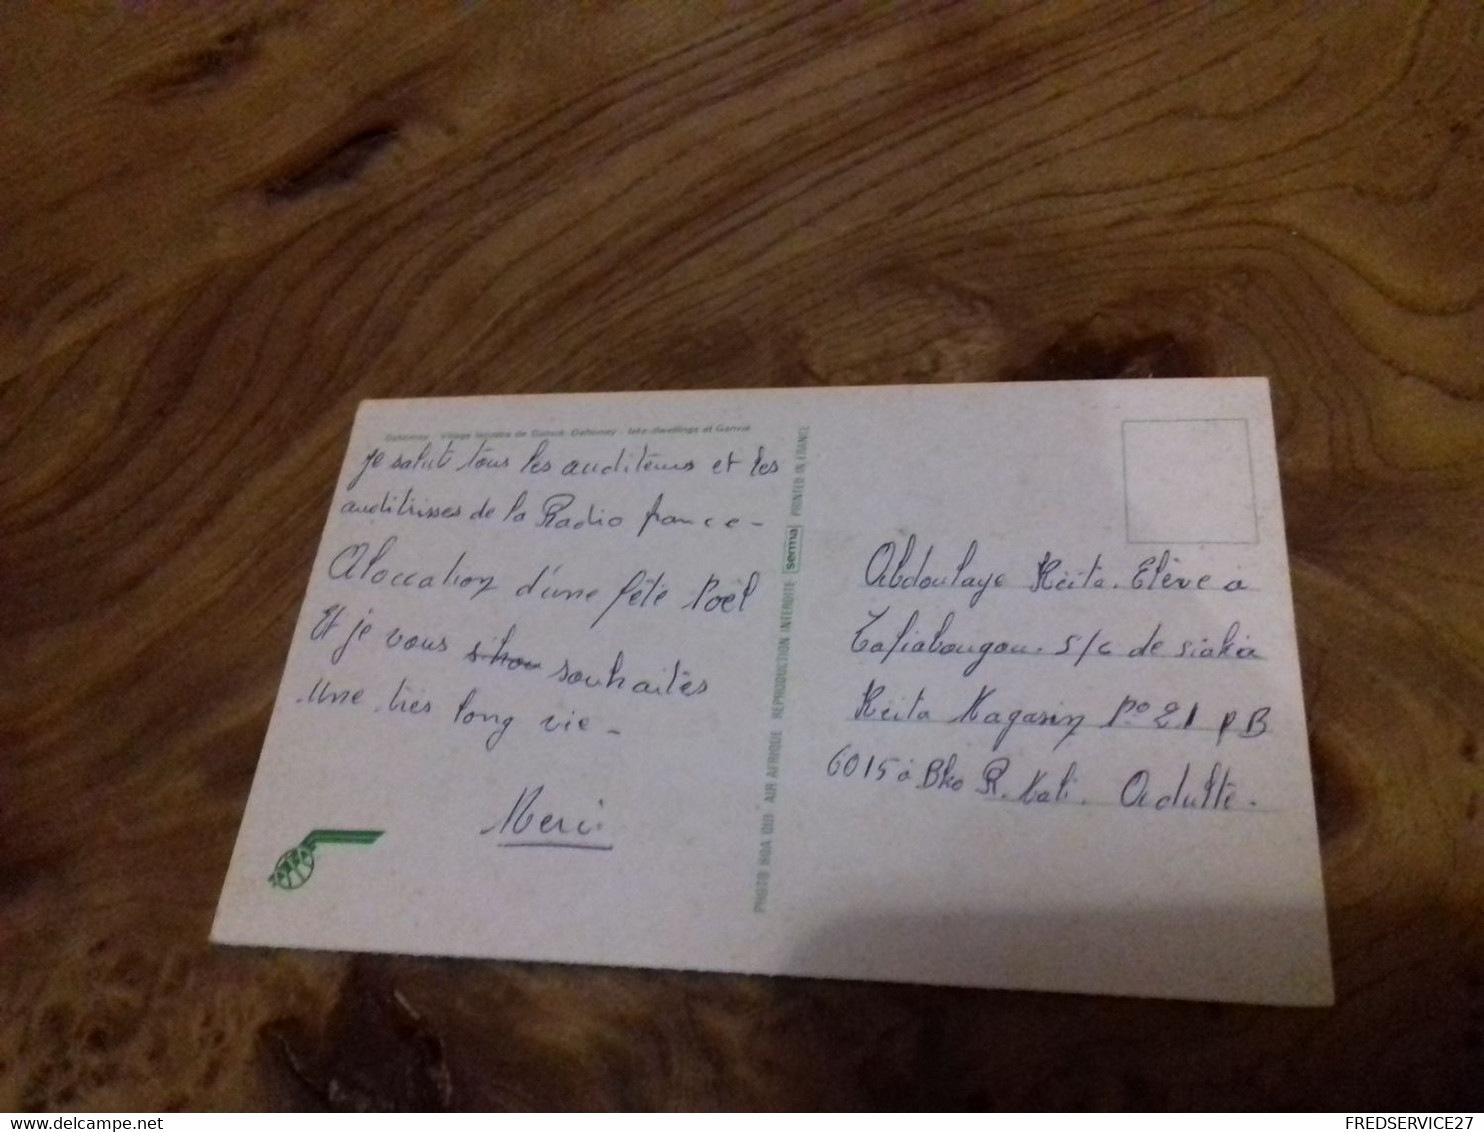 Dahomey - Village lacustre de Ganvié - Dahomey - lake-dwellings at Ganvié
je salut tous les auditeurs et les
auditrisses de la Radio france -
Aloccation d'une fête Noël
Et je vous souhaités
Une très long vie -
Merci
PHOTO HOA QUI - AIR AFRIQUE REPRODUCTION INTERDITE serma PRINTED IN FRANCE
Abdoulaye Kèita. Elève à
Taliabougou. S/C de siaka
Kèita Magasin no 21 PB
6015 à Bko R. Mali. Adulte.
FREDSERVICE27
http://www.delcampe.net